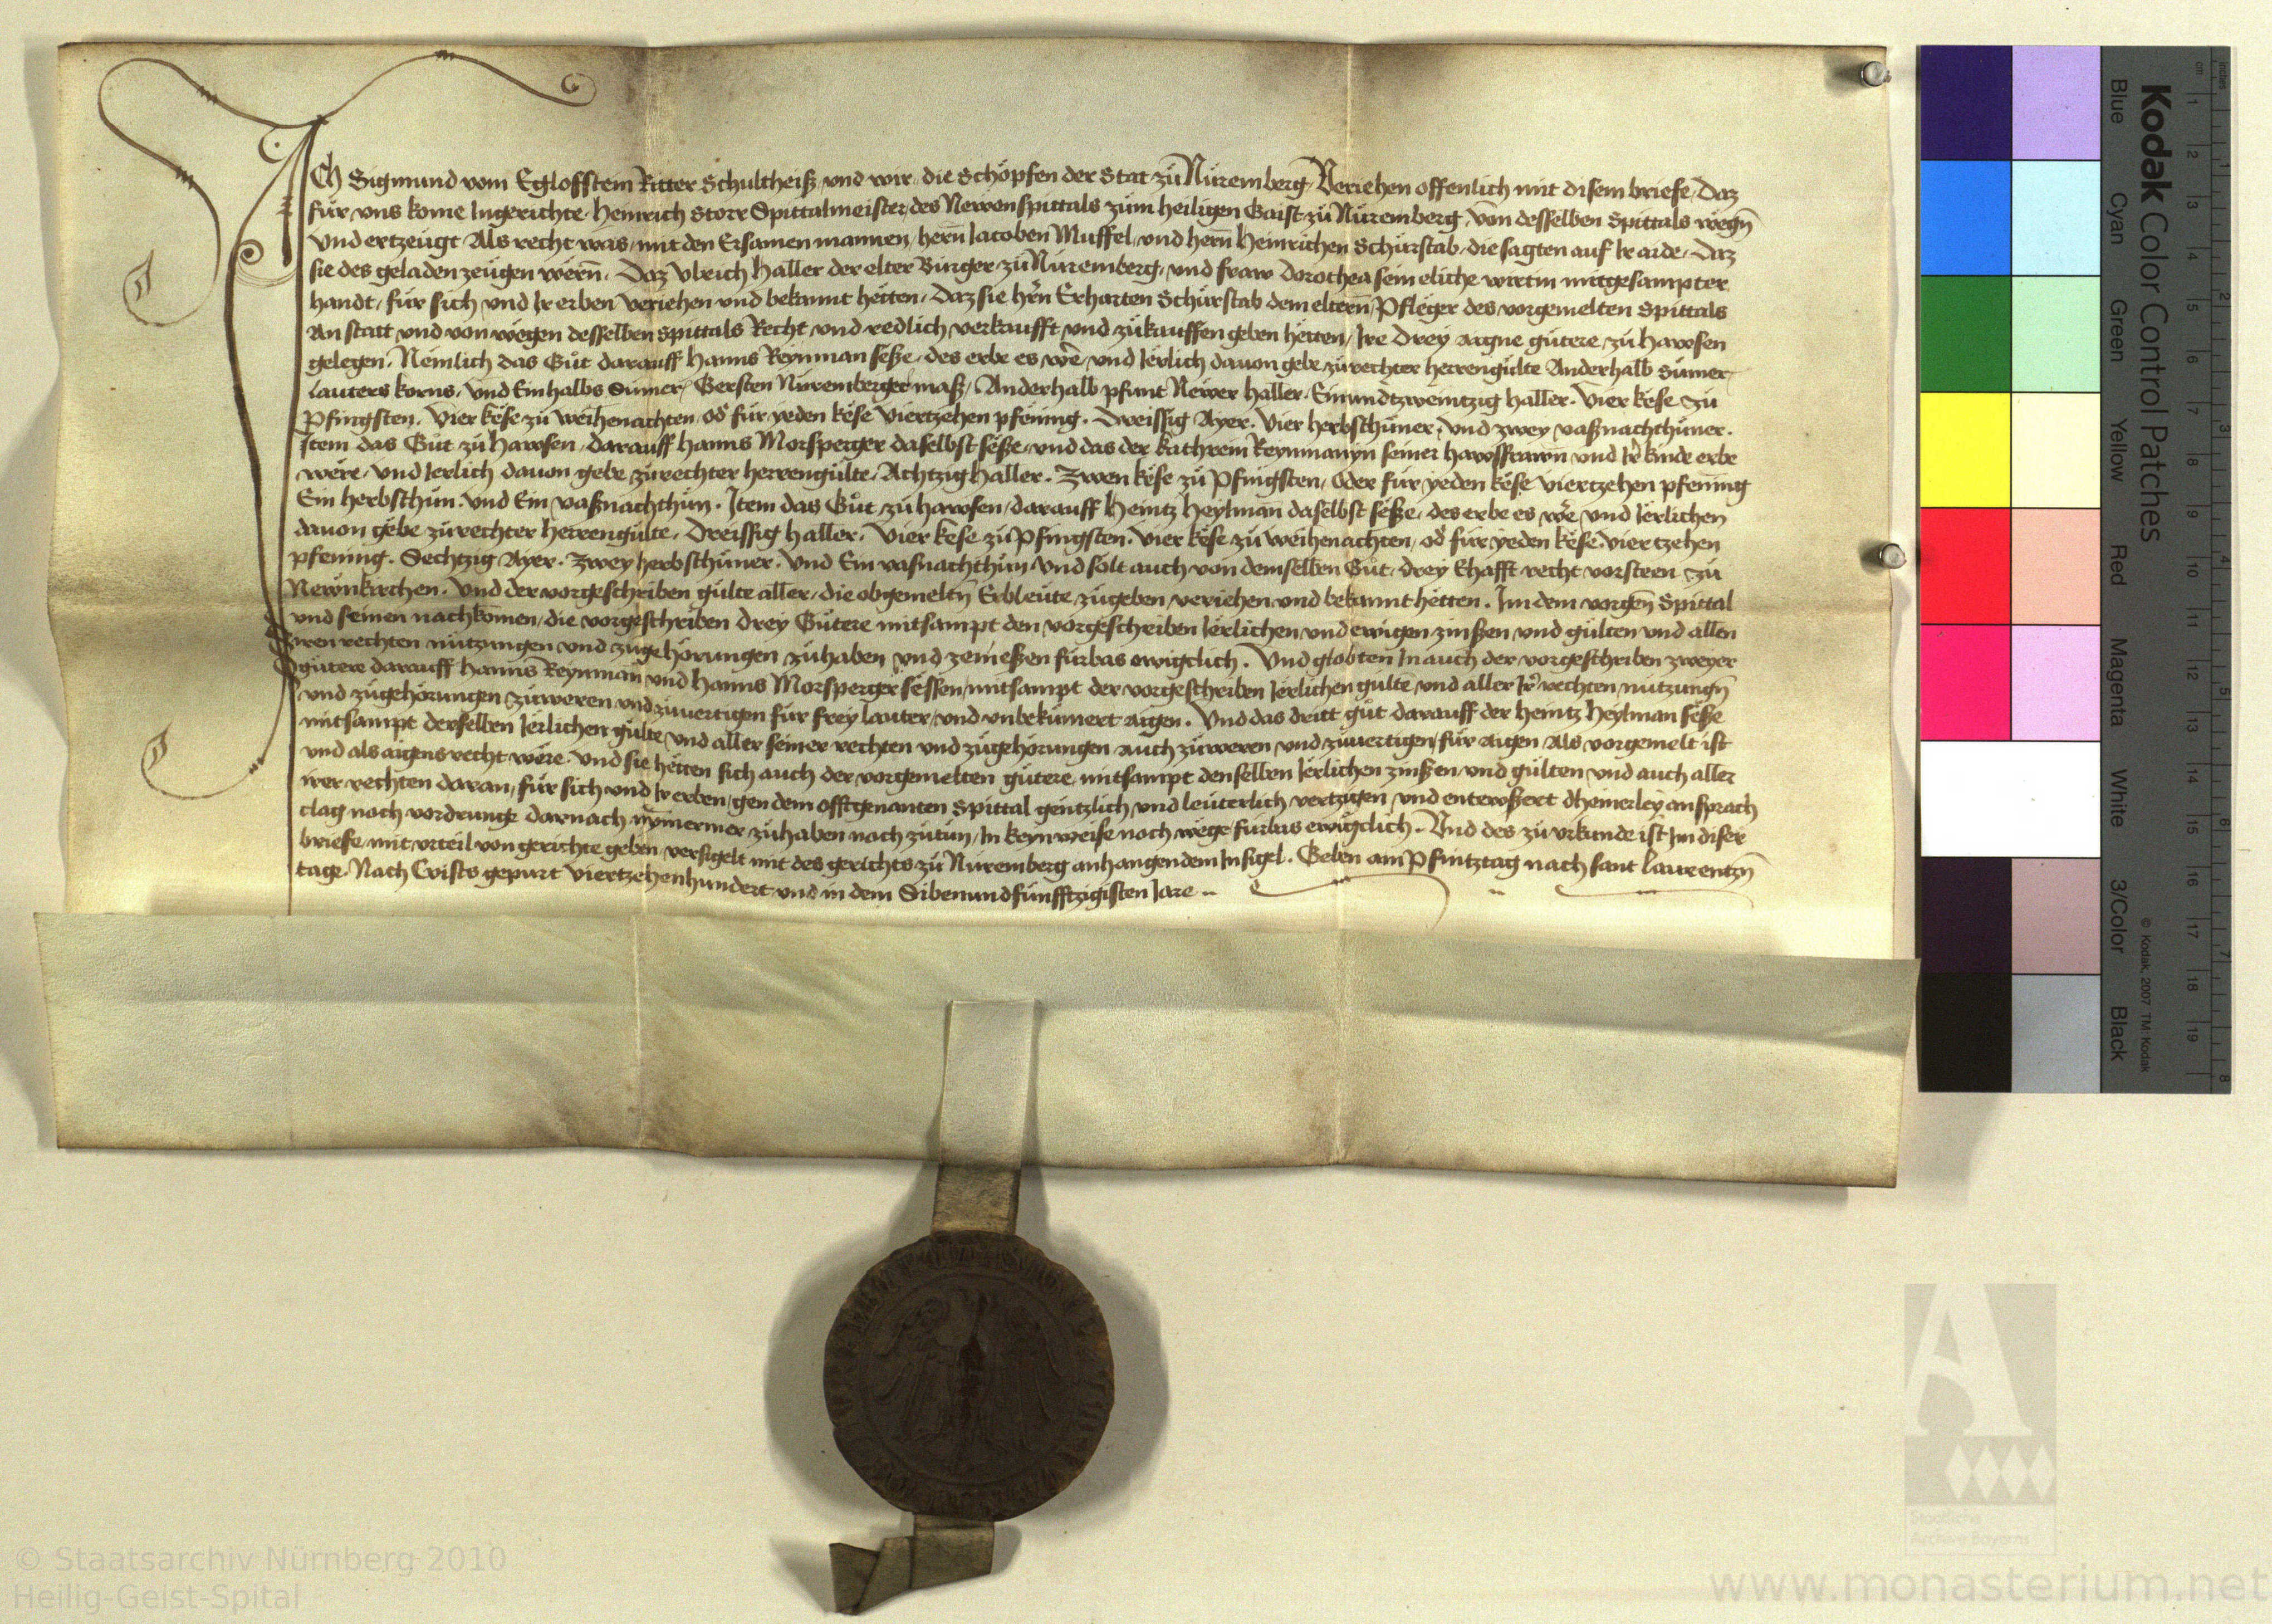 ICh Sigmund vom Egloffstein Ritter Schultheiß, vnd wir, die Schöpfen der Stat zů Nüremberg, Veriehen offenlich mit disem briefe, Daz
für vns kome Ingerichte, Heinrich Storr Spittalmeister, des Newenspittals zum heiligen Gaist, zů Nüremberg, von desselben Spittals wegn̄
Vnd ertzeugt Als recht was, mit den Ersamen mannen, hern̄ Jacoben Muffel, vnd hern̄ Heinrichen Schürstab, die sagten auf Ir aide, Daz
sie des geladen zeugen wern̄. Daz Vlrich Haller der elter Burger zů Nüremberg, vnd fraw Dorothea sein eliche wirtin mitgesampter
handt, für sich vnd Ir erben veriehen vnd bekannt hetten, Daz sie hr̄n Erharten Schürstab dem eltern̄, Pfleger des vorgemelten Spittals
An statt vnd von wegen desselben Spittals Recht vnd redlich verkaufft vnd zůkauffen geben hetten, Ire Drey aigne gütere zů Hawsen
gelegen. Nemlich das Gůt darauff Hanns Reynman seße, des erbe es wē, vnd Jerlich dauon gebe zůrechter herrengülte Anderhalb Sümer
lauters korns, Vnd Ein halbs Sümer, Gersten Nüremberger maß, Anderhalb pfunt Newer haller, Einundtzweintzig haller. Vier kese zu
Pfingsten. Vier kese zů weihenachten, od' für yeden kese viertzehen pfening. Dreissig Ayer. Vier herbsthüner, vnd zwey vaßnachthüner.
Item das Gůt zů Hawsen, darauff Hanns Morsperger daselbst seße, vnd das der kathrein Reynmanyn seiner Hawsfrawn̄ vnd Ir' kinde erbe
were, vnd Jerlich dauon gebe zůrechter herrengülte, Achtzig haller. Zwen kese zů Pfingsten, oder für yeden kese viertzehen pfening
Ein herbsthun. Vnd Ein vaßnachthun. Item das Gůt zů Hawsen, darauff Heintz Heylman̄ daselbst seße, des erbe es wē, vnd Jerlichen
dauon gebe zůrechter herrengülte, Dreissig haller. Vier kese zů Pfingsten. Vier kese zů weihenachten, od' für yeden kese viertzehen
pfening. Sechtzig Ayer. Zwey herbsthüner. Vnd Ein vasnachthun. Vnd solt auch von demselben Gůt, drey Ehafft recht vorsteen zů
Newnkirchen. Vnd der vorgeschriben gülte aller, die obgemeltn̄ Erbleute zůgeben veriehen vnd bekannt hetten. Im dem vorgen̄ Spittal
vnd seinen nachkōmen, die vorgeschriben drey Gütere mitsampt den vorgeschriben Jerlichen vnd ewigen zinßen vnd gülten vnd allen
Iren rechten nutzungen vnd zůgehörungen zůhaben vnd zenießen fürbas ewigclich. Vnd globten In auch der vorgeschriben zweyer
gütere darauff Hanns Reynman̄ vnd Hanns Morsperger sessen, mitsampt der vorgeschriben Jerlichen gülte vnd aller Ir' rechten nutzungn̄
vnd zůgehörungen zůweren vnd zůuertigen für frey lauter vnd vnbekümert aigen. Vnd das dritt gůt darauff der Heintz Heylman seße
mitsampt derselben Jerlichen gülte vnd aller seiner rechten vnd zůgehörungen auch zůweren vnd zůuertigen, für aigen, Als vorgemelt ist
vnd als aigens recht were. Vnd sie hetten sich auch der vorgemelten gütere mitsampt denselben Jerlichen zinßen vnd gülten vnd auch aller
irer rechten daran, für sich vnd Ir erben, gen dem offtgenanten Spittal gentzlich vnd leuterlich vertzigen vnd entewßert dheinerley ansprach
clag noch vordrunge darnach nymermer zůhaben noch zůtun, In keyn weise noch wege fürbas ewigclich. Vnd des zů vrkunde ist Im diser
briefe mit vrteil von gerichte geben versigelt mit des gerichts zů Nüremberg anhangendem Insigel. Geben am Pfintztag nach sant laurentzn̄
tage. Nach Crists gepurt viertzehenhundert vnd in dem Sibenundfünfftzigisten Jare ..
Kodak Color Control Patches
© Kodak, 2007 TM: Kodak
Blue Cyan Green Yellow Red Magenta White 3/Color Black
inches 1 2 3 4 5 6 7 8
cm 1 2 3 4 5 6 7 8 9 10 11 12 13 14 15 16 17 18 19
Staatliche
Archive Bayerns
© Staatsarchiv Nürnberg 2010
Heilig-Geist-Spital
www.monasterium.net